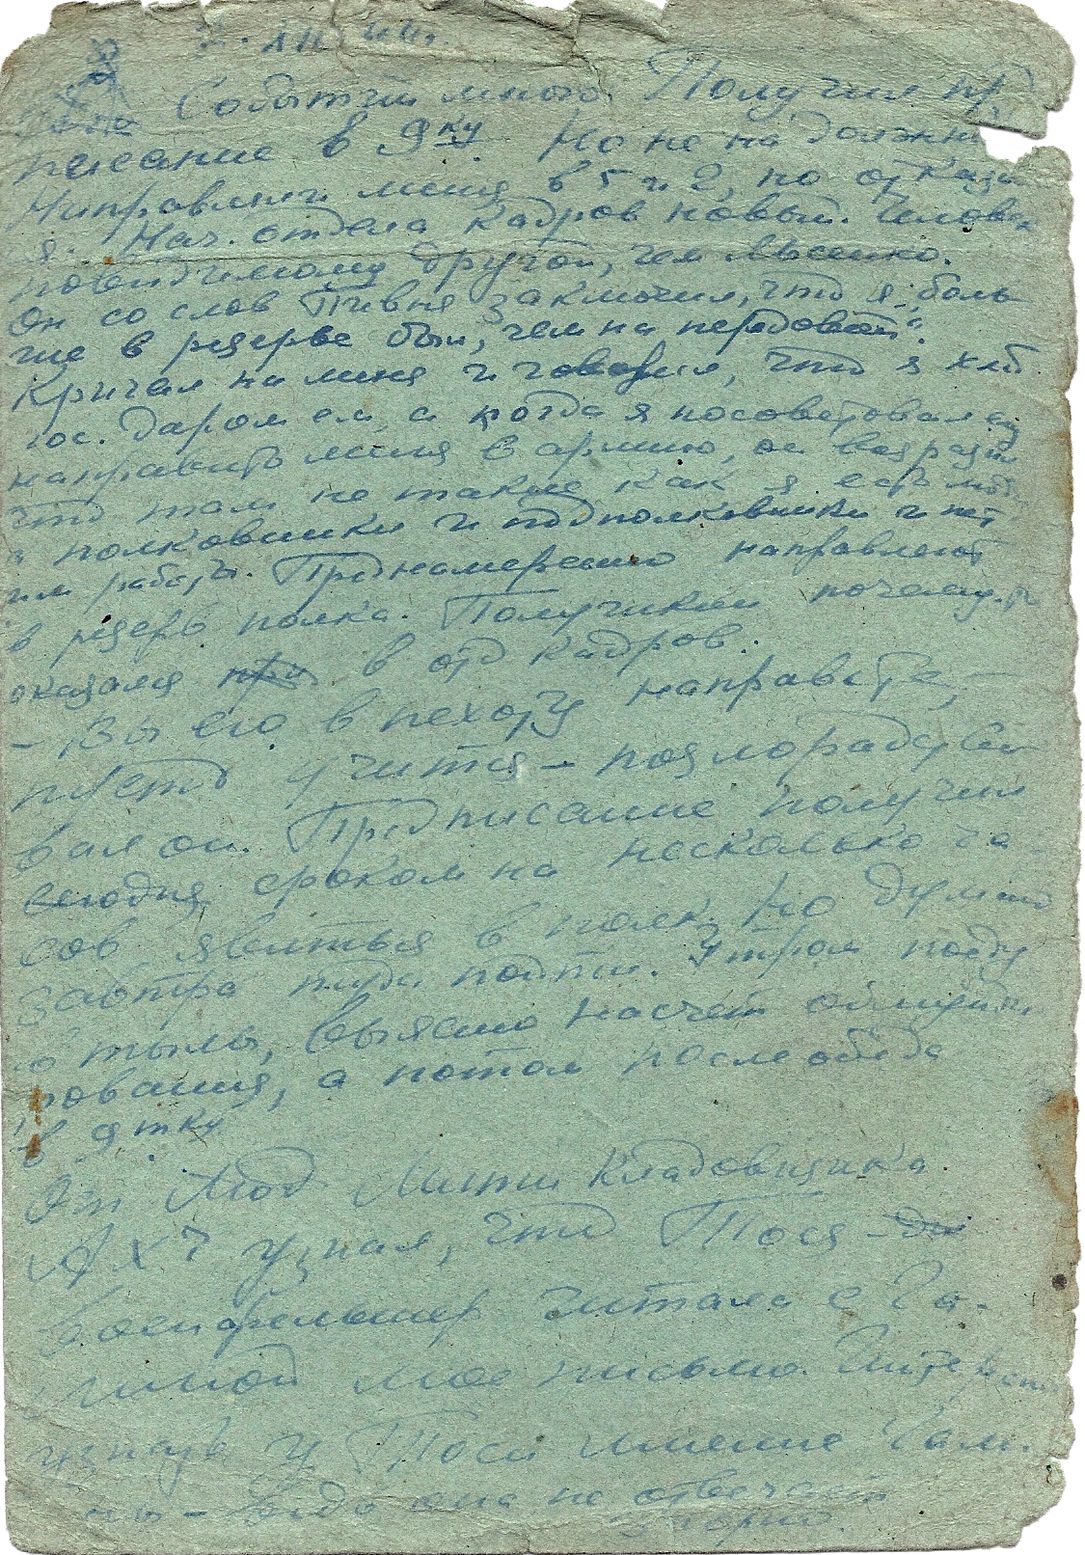 XII 44.
Событий много. Получил пред
писание в 9ку. Но не на должн
Направляли меня в 5 и 2, но отказал
я. Нач. отдела кадров новый. Человек
повидимому другой, чем Лысенко.
Он со слов Пивня заключил, что я „боль
ше в резерве был, чем на передовой".
Кричал на меня и говорил, что я хлеб
гос. даром ем, а когда я посоветовал ему
направить меня в армию, он возразил
что там не такие как я есть
и полковники и подполковники и нет
им работы. Преднамеренно направляют
в резерв полка. Полушкин почему-то
оказался в отд кадров.
- Вы его в пехоту направьте, -
пусть учится - позлорадство
вал он. Предписание получил
сегодня, сроком на несколько ча-
сов явиться в полк, но думаю
завтра туда пойти. Утром пойду
в тылы, выясню насчет обмунди
рования, а потом после обеда
в 9тку
От Мити Кладовщика
АХЧ узнал, что Тося -
военфельдшер читала с Га-
линой мое письмо. Интересно
узнать у Тоси мнение Гали-
ны - ведь она не отвечает